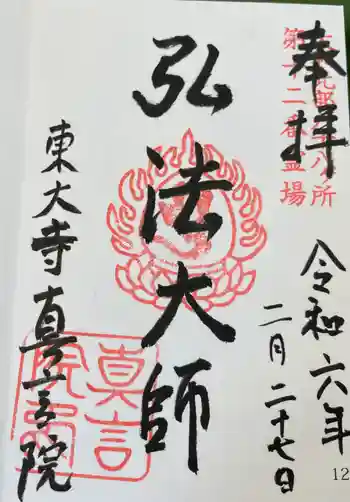 奉拝
第十二番霊場
令和六年
二月二十七日
弘法大師
東大寺真言院
真言
院
12